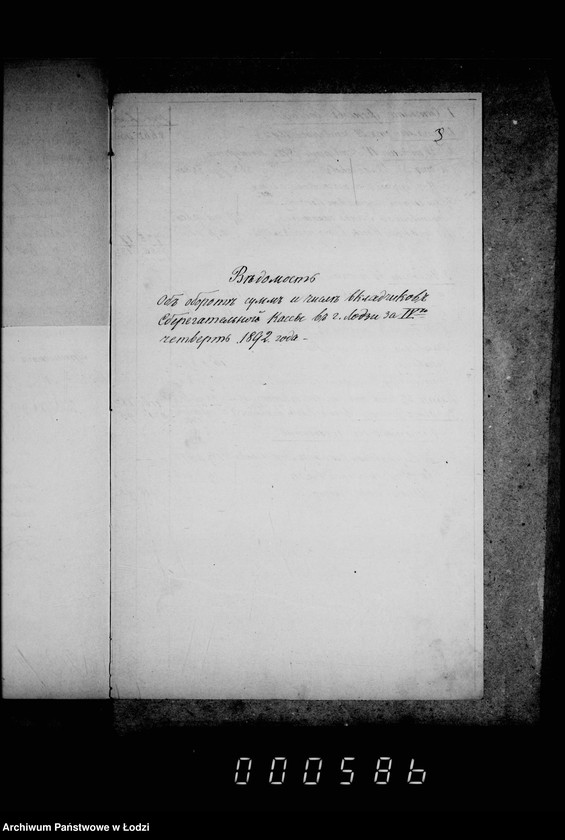 3
Вѣдомость
Объ оборотѣ суммъ и числѣ вкладчиковъ
Сберегательной Кассы въ г. Лодзи за IVю
четверть 1892 года –
000586
Archiwum Państwowe w Łodzi